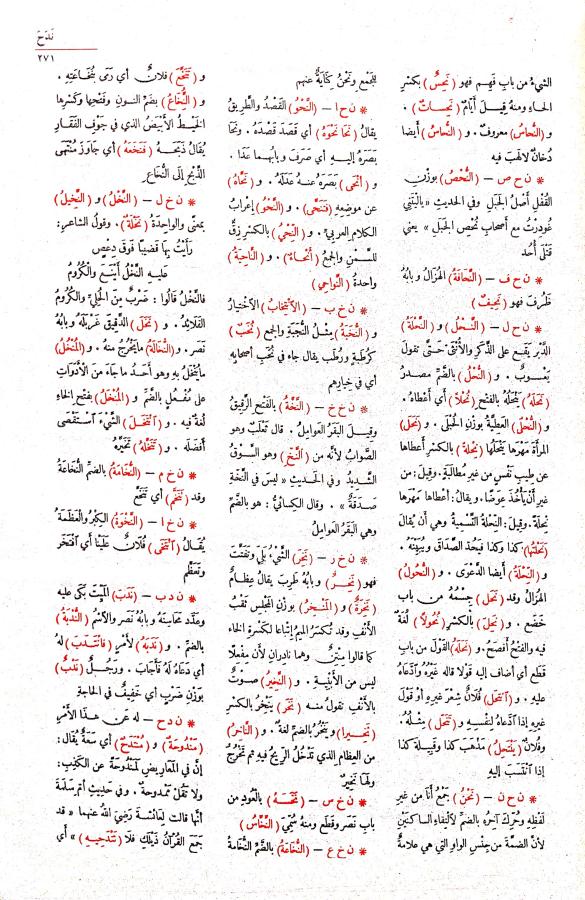 نَدَحَ
٢٧١
الشيءُ من باب فَهِم فهو (نَحِسٌ) بكسْرِ
الحاء ومنهُ قِيلَ أيّامٌ (نَحِساتٌ) .
و (النُّحاسُ) معروفٌ . و (النُّحاسُ) أيضا
دُخانٌ لالَهَبَ فيه
* ن ح ص – (النُّحْصُ) بوزنِ
القُفْلِ أَصْلُ الجَبَلِ وفى الحديثِ «يالَيْتَنِى
غُودِرْتُ مع أصحابِ نُحْصِ الجَبَلِ» يعني
قَتْلَى أُحُد
* ن ح ف – (النَّحَافةُ) الهُزَالُ وبابُهُ
ظَرُفَ فهو (نَحِيفٌ)
* ن ح ل – (النَّحْلُ) و (النَّحْلةُ)
الدَّبْر يَقَعُ على الذَّكَرِ والأُنْثَى حتَّى تقولَ
يَعْسُوبٌ . و (النُّحْلُ) بالضَّمّ مصدرُ
(نَحَلَهُ) يَنْحَلُهُ بالفتحِ (نُحْلاً) أي أَعْطَاهُ .
و (النُّحْلَى) العَطِيَّةُ بوزن الحُبْلَى . و (نَحَلَ)
المرأةَ مَهْرَها يَنْحَلُها (نِحْلةً) بالكسْرِ أعطاها
عن طِيبِ نَفْسٍ من غيرِ مُطالَبَةٍ . وقيلَ : من
غيرِ أنْ يأْخُذَ عِوَضًا . ويقالُ : أعْطاها مَهْرَها
نِحْلةً . وقيلَ : النِّحْلةُ التَّسْمِيةُ وهى أنْ يُقالَ
(نَحَلْتُها) كذا وكذا فيَحُدّ الصَّداقَ ويُبَيِّنهُ .
و (النِّحْلةُ) أيضا الدَّعْوَى . و (النُّحُولُ)
الهُزَالُ وقد (نَحَلَ) جِسْمُهُ من باب
خَضَعَ . و (نَحِلَ) بالكسْرِ (نُحُولاً) لُغَةٌ
فيه والفتحُ أفصَحُ . و (نَحَلَهُ) القَوْلَ من بابِ
قَطَع أي أضاف إليه قولا قاله غَيْرُهُ وادَّعاهُ
عليه . و (انْتَحَلَ) فُلانٌ شِعْرَ غيرِهِ أو قَوْلَ
غيرِهِ إذا ادَّعاهُ لِنَفْسِهِ و (تَنَحَّلَ) مِثْلُهُ .
وفُلانٌ (يَنْتَحِلُ) مَذْهَبَ كذا وقَبِيلةَ كذا
إذا انْتَسَبَ إليهِ
* ن ح ن – (نَحْنُ) جَمْعُ أنَا من غيرِ
لَفظِهِ وحُرِّكَ آخِرُهُ بالضَّمّ لالْتِقاءِ الساكنَيْنِ
لأنَّ الضمّةَ من جِنْسِ الواوِ التي هي علامةٌ
للجَمْع ونَحْنُ كِنَايَةٌ عنهم
* ن ح ا – (النَّحْوُ) القَصْدُ والطَّرِيقُ
يقالُ (نَحَا نَحْوَهُ) أي قَصَدَ قَصْدَهُ . ونَحَا
بَصَرَهُ إليهِ أي صَرَفَ وبابُهما عَدَا .
و (أَنْحَى) بَصَرَهُ عنهُ عَدَلَهُ . و (نَحَّاهُ)
عن مَوضِعهِ (فَتَنَحَّى) . و (النَّحْوُ) إعْرابُ
الكلامِ العربىِّ . و (النِّحْىُ) بالكَسْرِ زِقٌّ
للسَّمْنِ والجمعُ (أَنْحاءٌ) . و (النَّاحِيةُ)
واحدةُ (النَّواحِى)
* ن خ ب – (الاِنْتِخابُ) الاِخْتِيارُ
و (النُّخَبَةُ) مِثْلُ النُّجَبَةِ والجمع (نُخَبٌ)
كَرُطَبةٍ ورُطَبٍ يقال جاء في نُخَبِ أصحابه
أي في خِيارِهِم
* ن خ خ – (النَّخَّةُ) بالفَتْحِ الرَّقِيقُ
وقيلَ البَقَرُ العَوامِلُ . قال ثَعْلَبٌ وهو
الصَّوابُ لأنَّه من (النَّخِّ) وهو السَّوْقُ
الشَّدِيدُ وفى الحديثِ «ليسَ في النَّخَّةِ
صَدَقَةٌ» . وقال الكسائىُّ : هو بالضّمِّ
وهى البَقَرُ العَوامِلُ
* ن خ ر – (نَخِرَ) الشَّىْءُ بَلِىَ وتَفَتَّتَ
فهو (نَخِرٌ) وبابُهُ طَرِبَ يقالُ عِظامٌ
(نَخِرَةٌ) و (المَنْخِرُ) بوزن المجْلِسِ ثَقْبُ
الأَنْفِ وقد تُكسَرُ الميمُ إتْباعًا لكَسْرةِ الخاءِ
كما قالوا مِنْتِنٌ وهما نادِرانِ لأنَّ مِفْعِلًا
ليس من الأَبْنِيةِ . و (النَّخِيرُ) صوتٌ
بالأَنْفِ تقولُ منه (نَخَرَ) يَنْخِرُ بالكسْرِ
(نَخِيرا) ويَنْخُرُ بالضم لغةٌ . و (النَّاخِرُ)
من العِظامِ الذي تَدْخُلُ الرِّيحُ فيه ثم تَخْرُجُ
ولها نَخِيرٌ
* ن خ س – (نَخَسَهُ) بالعُودِ من
باب نَصَر وقَطَع ومنه سُمِّىَ (النَّخَّاسُ)
* ن خ ع – (النُّخَاعَةُ) بالضَّمِّ النُّخَامةُ
و (تَنَخَّعَ) فلانٌ أي رَمَى بنُخَاعَتِهِ .
و (النُّخَاعُ) بضَمّ النونِ وفَتْحِها وكَسْرِها
الخَيْطُ الأَبْيَضُ الذي في جَوْفِ الفَقَارِ
يُقالُ ذَبَحَهُ (فنَخَعَهُ) أي جاوَزَ مُنْتَهَى
الذَّبْحِ إلى النُّخاعِ
* ن خ ل – (النَّخْلُ) و (النَّخِيلُ)
بمعنًى والواحدةُ (نَخْلةٌ) . وقولُ الشاعرِ :
رَأَيْتُ بها قَضيبًا فَوقَ دِعْصٍ
عليهِ النَّخْلُ أَيْنَعَ والكُرُومُ
فالنَّخْلُ قالُوا : ضَرْبٌ مِنَ الحُلِىِّ والكُرُومُ
القَلائدُ . و (نَخَلَ) الدَّقيقَ غَرْبَلَهُ وبابُهُ
نَصَر . و (النُّخالَةُ) مايَخْرُجُ منه . و (المُنْخُلُ)
مايُنْخَلُ بهِ وهو أحَدُ ما جاءَ مِنَ الأَدَواتِ
على مُفْعُلٍ بالضَّمِّ و (المُنْخَلُ) بفتحِ الخاءِ
لُغةٌ فيه . و (انْتَخَلَ) الشَّىْءَ اسْتَقْصَى
أفْضَلَهُ . و (تَنَخَّلَهُ) تَخَيَّرَهُ
* ن خ م – (النُّخَامَةُ) بالضمِّ النُّخَاعَةُ
وقد (تَنَخَّمَ) أي تَنَخَّعَ
* ن خ ا – (النَّخْوَةُ) الكِبْرُ والعَظَمةُ
يُقالُ (انْتَخَى) فُلانٌ علَيْنا أي افْتَخَرَ
وتَعَظَّم
* ن د ب – (نَدَبَ) المَيِّتَ بَكَى عليه
وعَدَّدَ مَحاسِنَهُ وبابُهُ نَصَر والاسْمُ (النُّدْبَةُ)
بالضَّمِّ . و (نَدَبَهُ) لأَمْرٍ (فانْتَدَبَ) لهُ
أي دَعَاهُ لَهُ فَأَجَابَ . ورَجُلٌ (نَدْبٌ)
بوَزْنِ ضَرْبٍ أي خَفِيفٌ في الحاجةِ
* ن د ح – له عن هذا الأَمْرِ
(مَنْدُوحَةٌ) و (مُنْتَدَحٌ) أي سَعَةٌ يقالُ :
إنَّ في المَعَارِيضِ لَمَنْدُوحَةً عن الكَذِبِ .
ولا تَقُلْ مَمْدوحة . وفي حَديثِ أُمِّ سَلَمةَ
أنَّها قالت لِعائشةَ رَضِىَ اللهُ عنهما «قد
جَمَعَ القُرآنُ ذَيْلَكِ فلا (تَنْدَحِيهِ) » أي